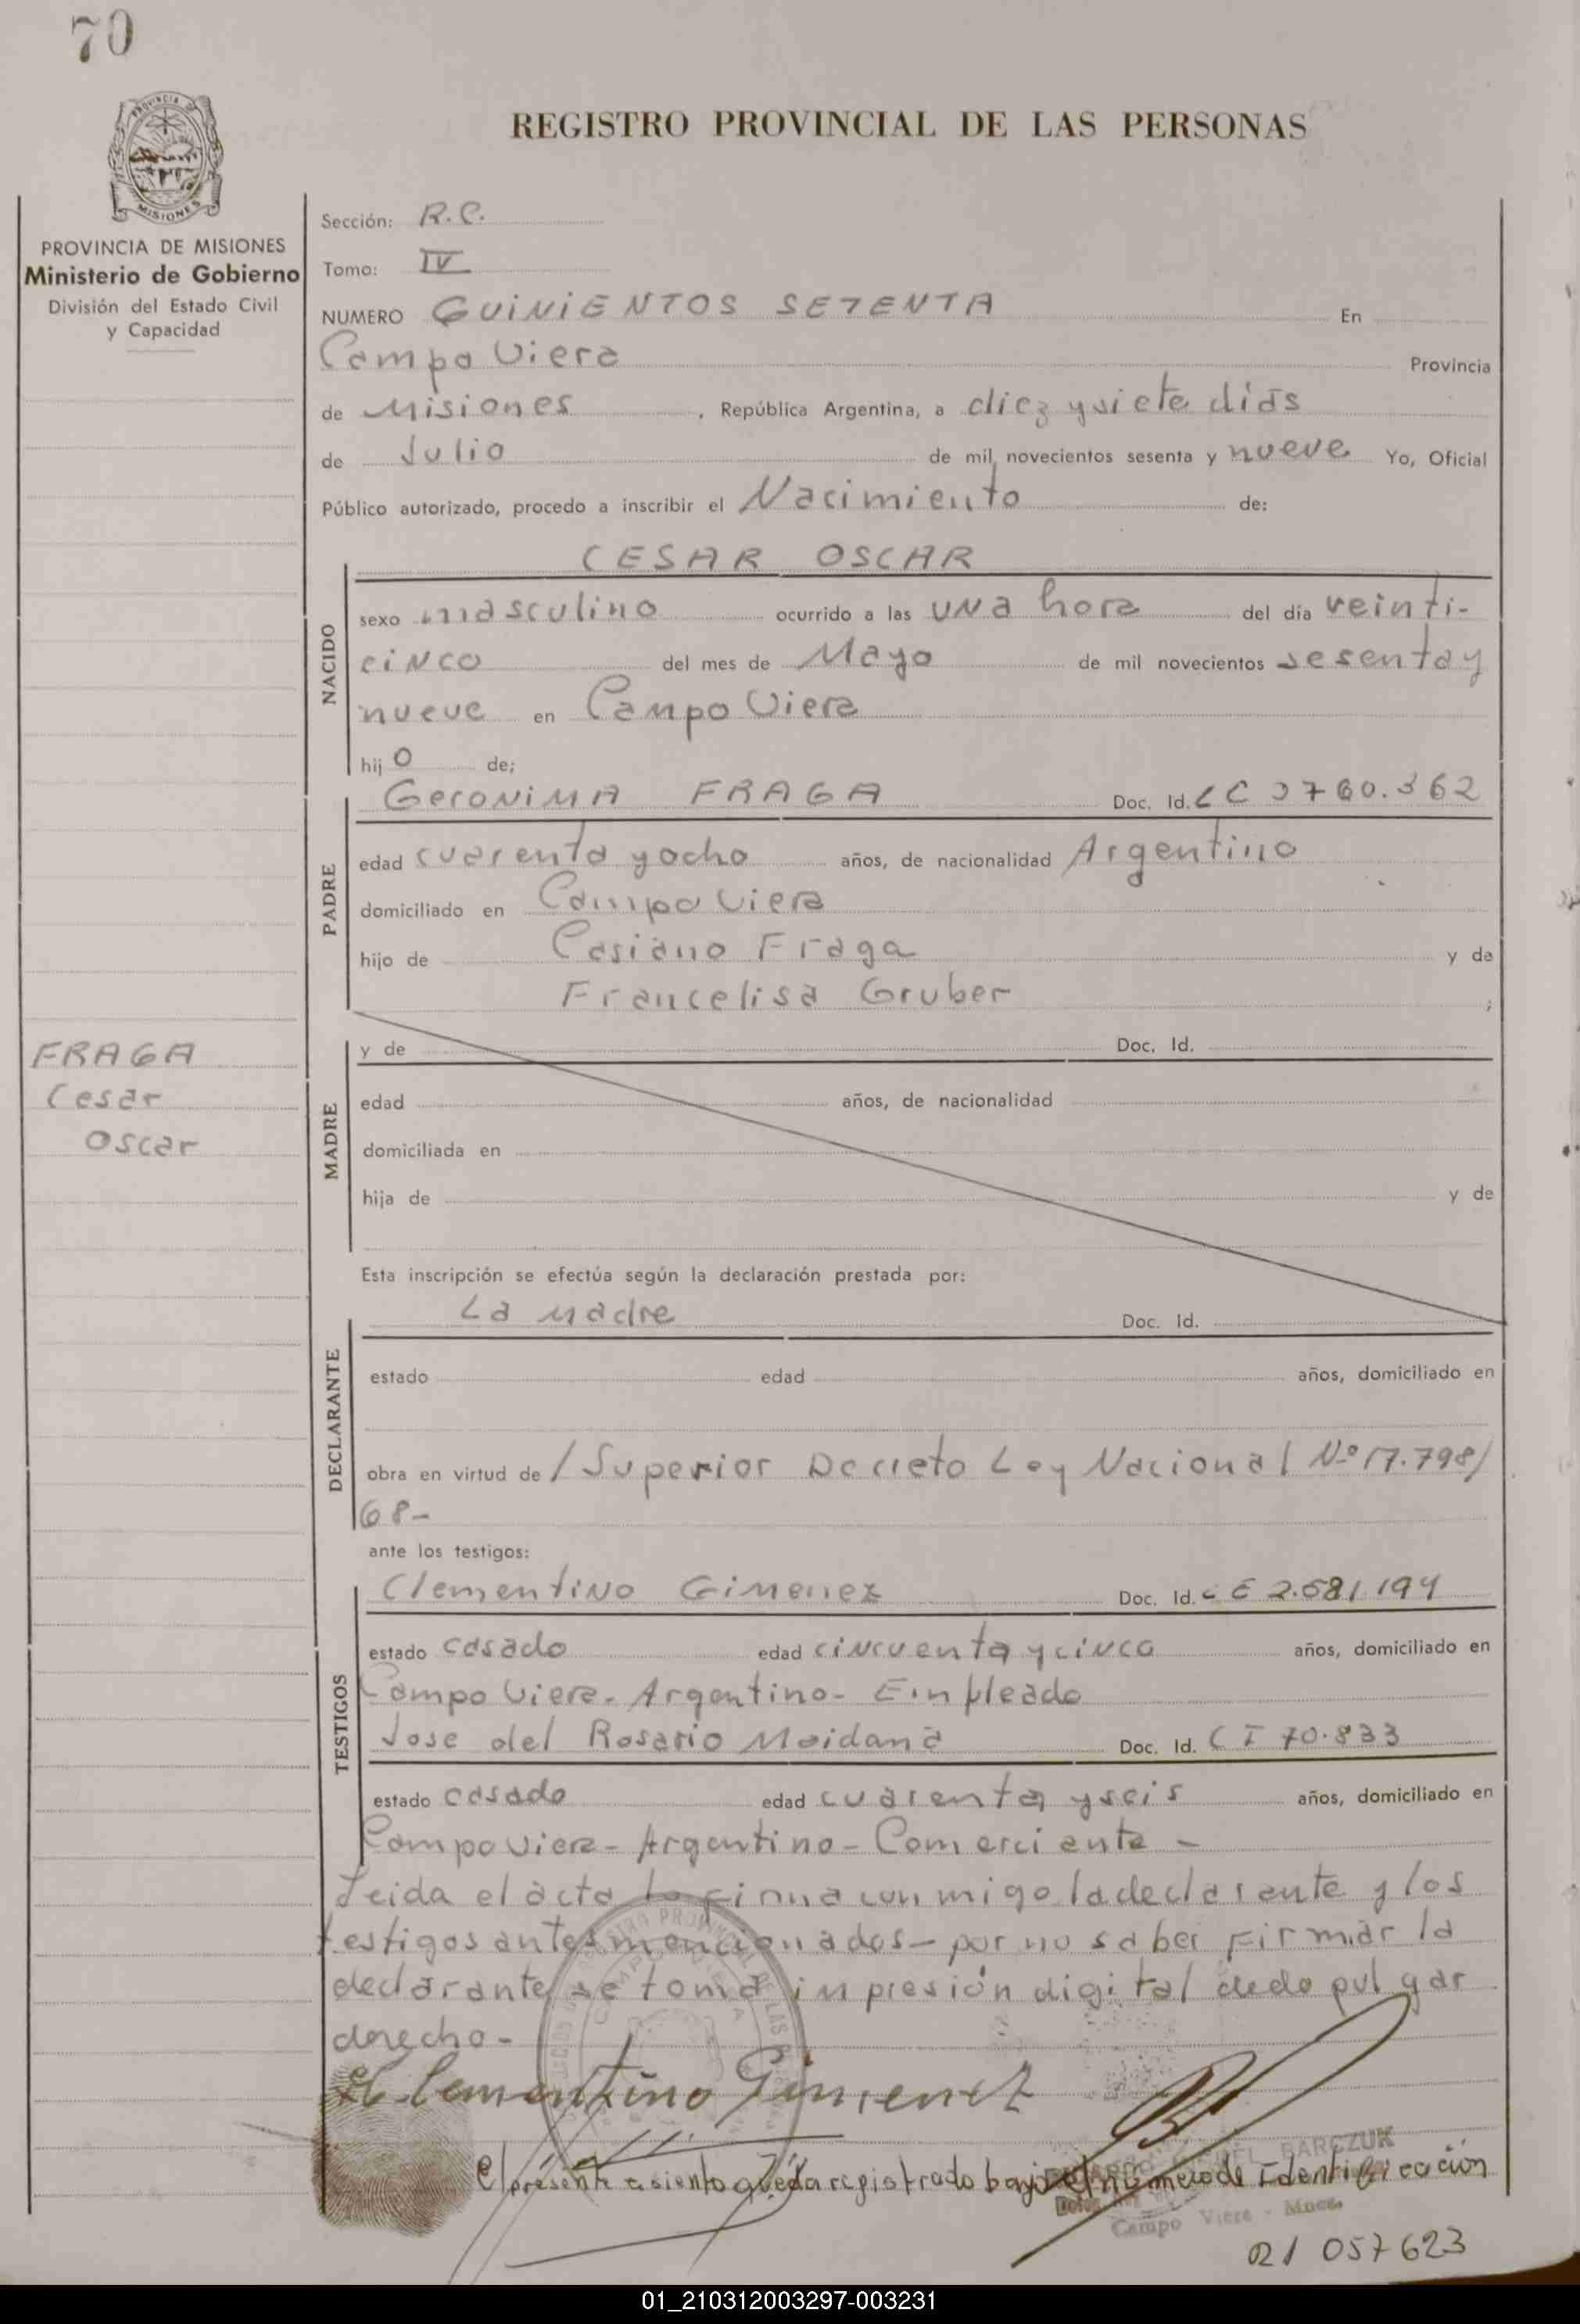 70
REGISTRO PROVINCIAL DE LAS PERSONAS
PROVINCIA DE MISIONES
Ministerio de Gobierno
División del Estado Civil
y Capacidad
Sección: R.C.
Tomo: IV
NUMERO QUINIENTOS SETENTA En
Campo Viera Provincia
de Misiones, República Argentina, a diez y siete días
de Julio de mil novecientos sesenta y nueve Yo, Oficial
Público autorizado, procedo a inscribir el Nacimiento de:
CESAR OSCAR
NACIDO
sexo masculino ocurrido a las una hora del día veinti-
cinco del mes de Mayo de mil novecientos sesenta y
nueve en Campo Viera
hijo de;
Geronima FRAGA Doc. Id. LC 3760.362
PADRE
edad cuarenta y ocho años, de nacionalidad Argentino
domiciliado en Campo Viera
hijo de Casiano Fraga y de
Francelisa Gruber ;
FRAGA
Cesar
Oscar
MADRE
y de Doc. Id.
edad años, de nacionalidad
domiciliada en
hija de y de
Esta inscripción se efectúa según la declaración prestada por:
La Madre Doc. Id.
DECLARANTE
estado edad años, domiciliado en
obra en virtud de / Superior Decreto Ley Nacional Nº 17.798/
68-
ante los testigos:
TESTIGOS
Clementino Gimenez Doc. Id. LE 2.581.194
estado casado edad cincuenta y cinco años, domiciliado en
Campo Viera- Argentino- Empleado
Jose del Rosario Maidana Doc. Id. CI 70.833
estado casado edad cuarenta y seis años, domiciliado en
Campo Viera- Argentino- Comerciante -
Leida el acta la firma conmigo la declarante y los
testigos antes mencionados- por no saber firmar la
declarante se toma impresión digital dedo pulgar
derecho-
Clementino Gimenez
BARCZUK
Campo Viera - Mnes.
El presente asiento queda registrado bajo el número de identificación
21 057 623
01_210312003297-003231